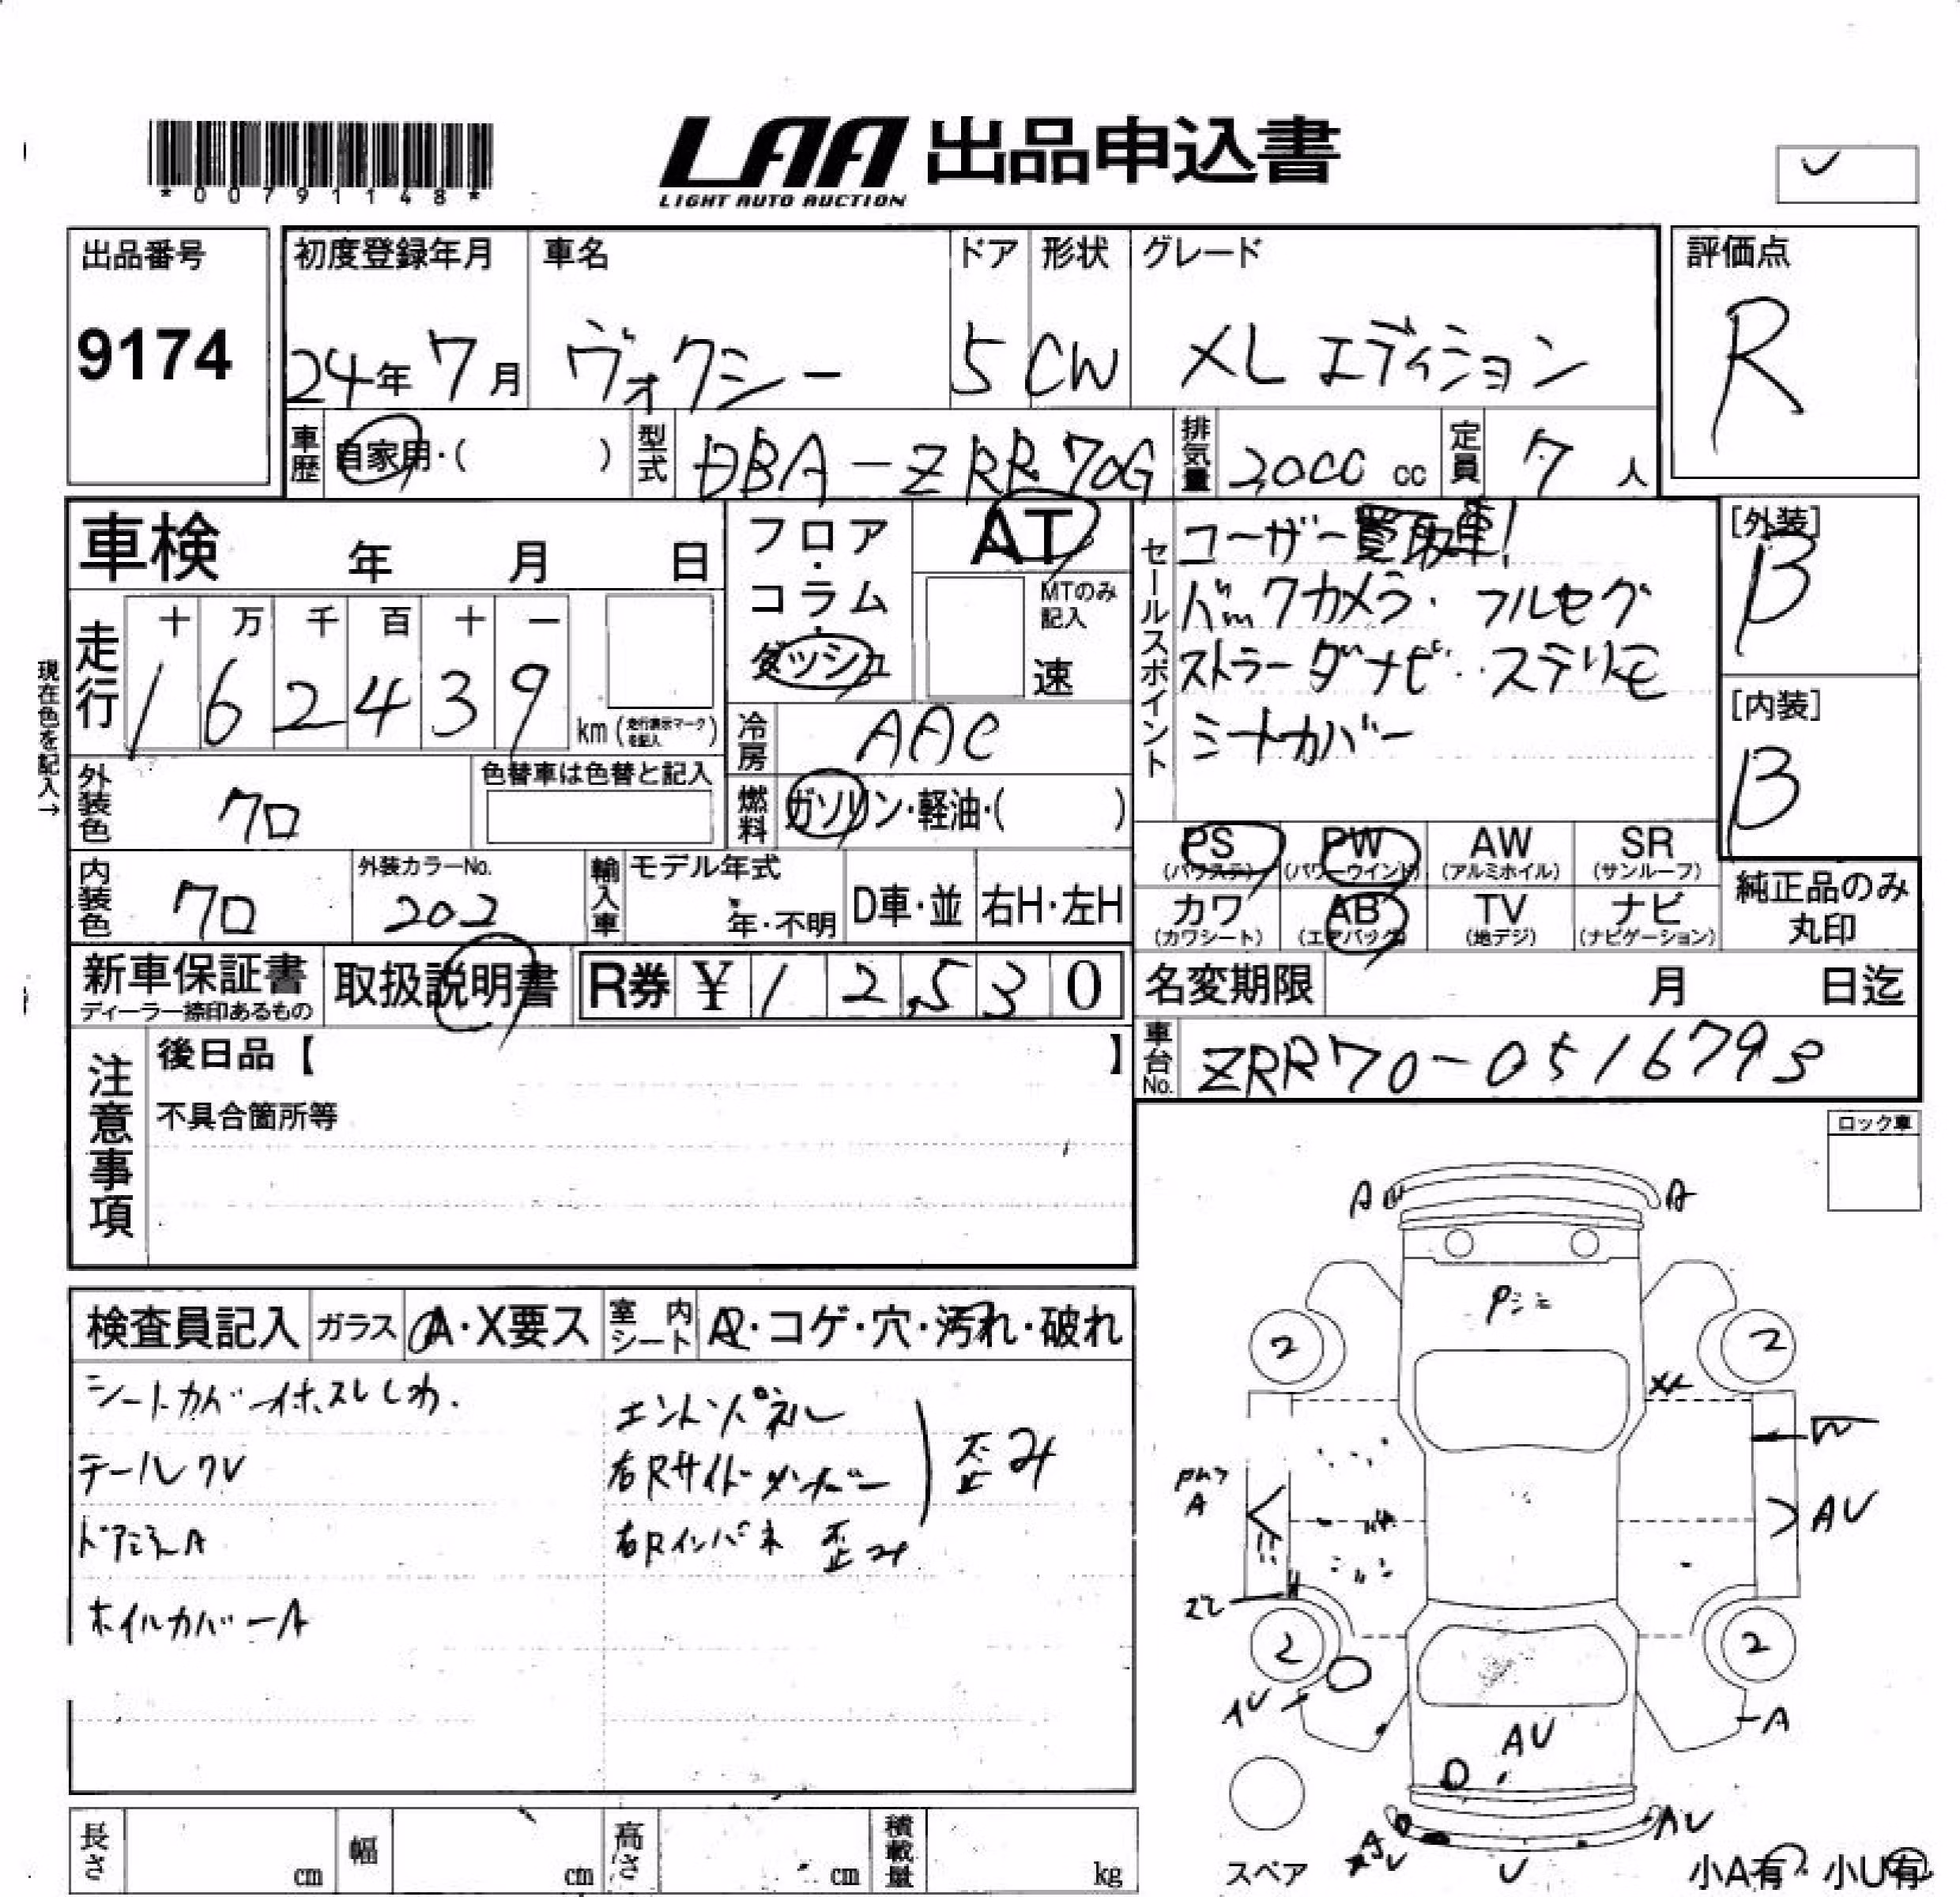 *00791148*
LAA 出品申込書
LIGHT AUTO AUCTION
出品番号
9174
初度登録年月 車名 ドア 形状 グレード
24年 7月 ヴォクシー 5 CW XL エディション
評価点
R
車歴 自家用・( ) 型式 DBA-ZRR70G 排気量 2,000 cc 定員 7 人
車検 年 月 日
フロア・コラム・ダッシュ
AT
MTのみ記入
速
現在色を記入→
走行
十 万 千 百 十 一
1 6 2 4 3 9 km (走行表示マークを記入)
冷房 AAC
外装色 クロ
色替車は色替と記入
燃料 ガソリン・軽油・( )
内装色 クロ
外装カラーNo.
202
輸入車 モデル年式
年・不明
D車・並 右H・左H
セールスポイント
ユーザー買取車!
バックカメラ・フルセグ
ストラーダナビ・ステリモ
シートカバー
[外装]
B
[内装]
B
PS (パワステ) PW (パワーウインド) AW (アルミホイル) SR (サンルーフ)
カワ (カワシート) AB (エアバッグ) TV (地デジ) ナビ (ナビゲーション)
純正品のみ丸印
新車保証書
ディーラー捺印あるもの
取扱説明書
R券 ¥ 1 2,5 3 0
名変期限 月 日迄
車台No. ZRR70-0516793
注意事項
後日品【 】
不具合箇所等
ロック車
検査員記入 ガラス A・X要ス 室内シート A・コゲ・穴・汚れ・破れ
テールクV
ホイルカバーA
エンドパネル
右Rサイドメンバー
歪み
右Rインパネ 歪み
A A
2 2
AV
A
2 2
A
AV
AV
V
スペア
小A有・小U有
長さ cm 幅 cm 高さ cm 積載量 kg